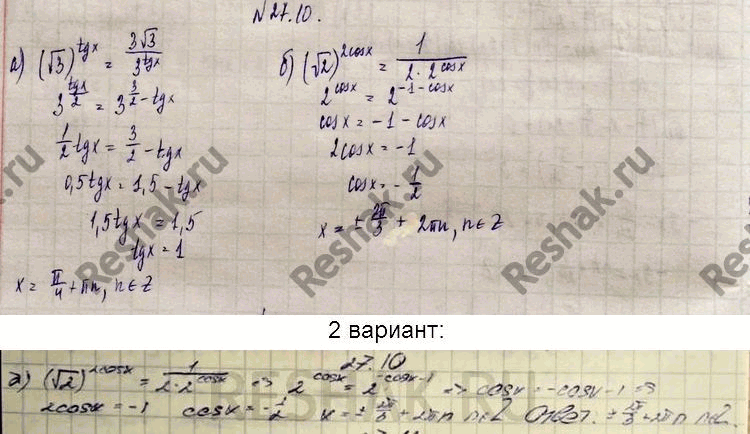 N 27.10.
а) (√3)^tgx = 3√3 / 3^tgx
3^(tgx/2) = 3^(3/2 - tgx)
1/2 tgx = 3/2 - tgx
0,5tgx = 1,5 - tgx
1,5tgx = 1,5
tgx = 1
x = π/4 + πn, n ∈ Z
б) (√2)^2cosx = 1 / 2·2^cosx
2^cosx = 2^(-1-cosx)
cosx = -1 - cosx
2cosx = -1
cosx = -1/2
x = ± 2π/3 + 2πn, n ∈ Z
Reshak.ru
Reshak.ru
Reshak.ru
2 вариант:
27.10
(√2)^2cosx = 1 / 2·2^cosx => 2^cosx = 2^(-cosx-1) => cosx = -cosx-1 =>
2cosx = -1 cosx = -1/2 x = ± 2π/3 + 2πn n∈Z Ответ: ± 2π/3 + 2πn n∈Z
RESHAK.RU